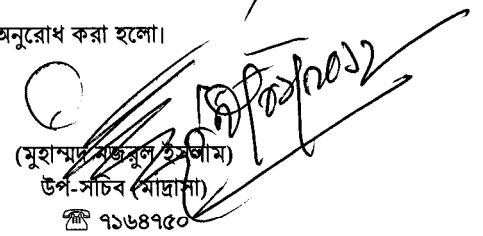 অনুরোধ করা হলো।
(মুহাম্মদ নজরুল ইসলাম)
উপ-সচিব (মাদ্রাসা)
☎ ৭১৬৪৭৫০